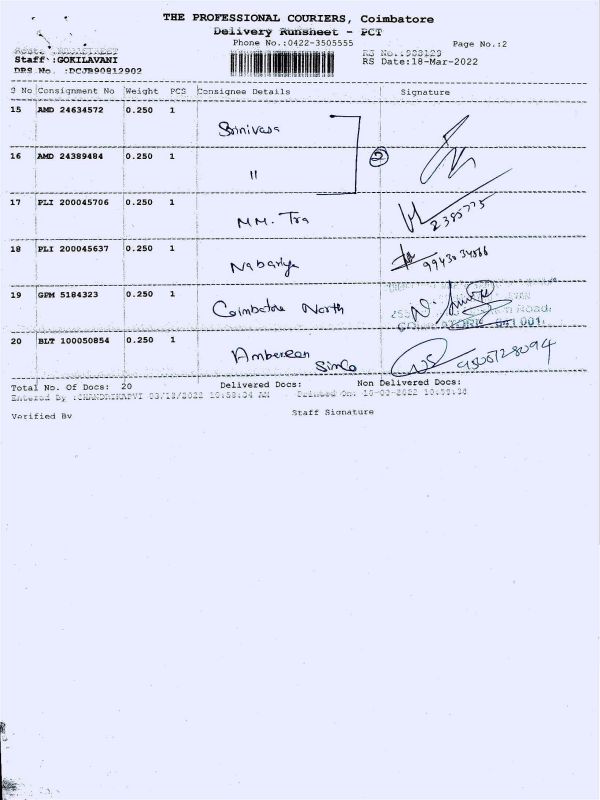 THE PROFESSIONAL COURIERS, Coimbatore
Delivery Runsheet - PCT
Phone No.:0422-3505555 Page No.:2
Staff :GOKILAVANI RS Date:18-Mar-2022
DRS No. :DCJB90812902
S No Consignment No Weight PCS Consignee Details Signature
15 AMD 24634572 0.250 1
Srinivasa
16 AMD 24389484 0.250 1 2
"
17 PLI 200045706 0.250 1
MM. Tra
18 PLI 200045637 0.250 1
19 GPM 5184323 0.250 1
Coimbatore North
20 BLT 100050854 0.250 1
9500728094
Total No. Of Docs: 20 Delivered Docs: Non Delivered Docs:
Entered By :CHANDRIKAPVT 03/18/2022 10:58:34 AM Printed On: 18-03-2022 10:58:38
Verified By Staff Signature